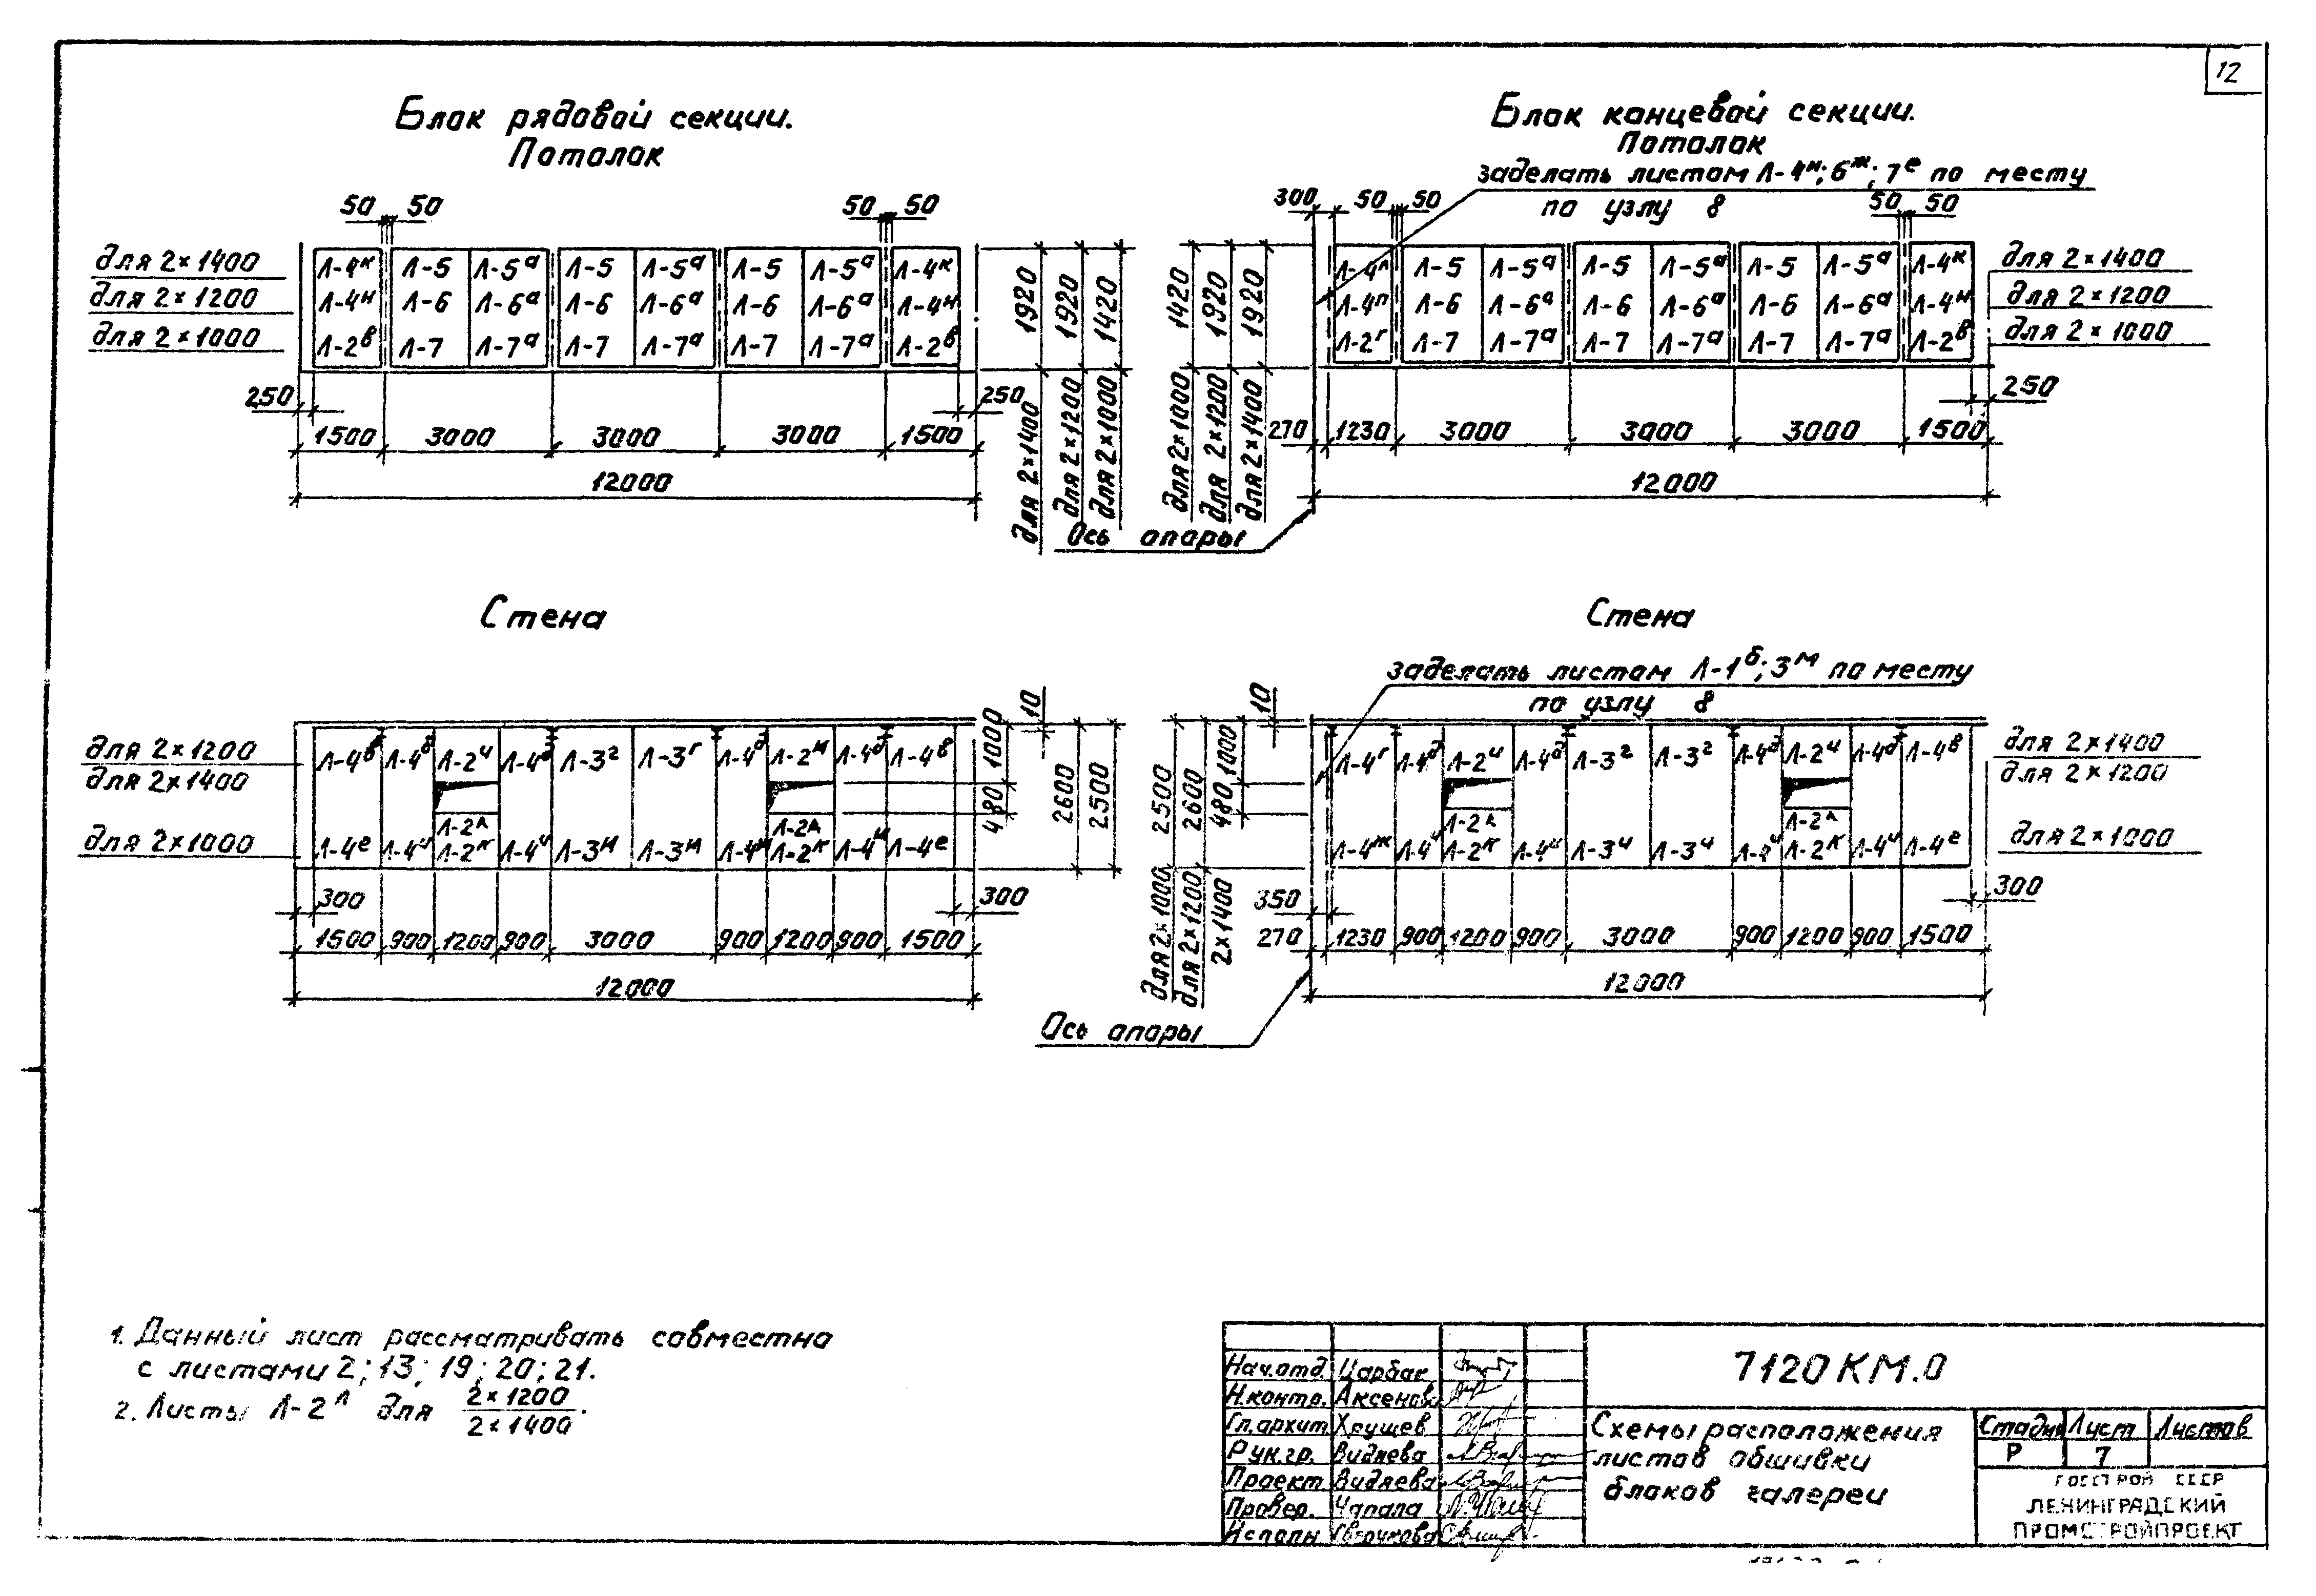 12
Блок рядовой секции.
Потолок
50 50 50 50
для 2×1400
для 2×1200
для 2×1000
Л-4к Л-5 Л-5а Л-5 Л-5а Л-5 Л-5а Л-4к
Л-4н Л-6 Л-6а Л-6 Л-6а Л-6 Л-6а Л-4н
Л-2в Л-7 Л-7а Л-7 Л-7а Л-7 Л-7а Л-2в
250 250
1500 3000 3000 3000 1500
12000
1920 1920 1420
для 2×1400 для 2×1200 для 2×1000
Блок концевой секции.
Потолок
заделать листом Л-4н; 6ж; 7е по месту
по узлу 8
300 50 50 50 50
1420 1920 1920
для 2×1000 для 2×1200 для 2×1400
Л-4п Л-5 Л-5а Л-5 Л-5а Л-5 Л-5а Л-4к
Л-4п Л-6 Л-6а Л-6 Л-6а Л-6 Л-6а Л-4н
Л-2г Л-7 Л-7а Л-7 Л-7а Л-7 Л-7а Л-2в
для 2×1400
для 2×1200
для 2×1000
250
270 1230 3000 3000 3000 1500
12000
Ось опоры
Стена
для 2×1200
для 2×1400
для 2×1000
Л-4в Л-4д Л-2и Л-4д Л-3г Л-3г Л-4д Л-2и Л-4д Л-4в
Л-2л Л-2л
Л-4е Л-4и Л-2к Л-4и Л-3и Л-3и Л-4и Л-2к Л-4и Л-4е
300 300
1500 900 1200 900 3000 900 1200 900 1500
12000
10 1000 480 2600 2500
Стена
заделать листом Л-1б; 3м по месту
по узлу 8
10
2500 2600 480 1000
для 2×1000 для 2×1200 2×1400
Л-4г Л-4д Л-2и Л-4д Л-3г Л-3г Л-4д Л-2и Л-4д Л-4в
Л-2л Л-2л
Л-4ж Л-4и Л-2к Л-4и Л-3и Л-3и Л-4и Л-2к Л-4и Л-4е
для 2×1400
для 2×1200
для 2×1000
350 300
270 1230 900 1200 900 3000 900 1200 900 1500
12000
Ось опоры
1. Данный лист рассматривать совместно
с листами 2; 13; 19; 20; 21.
2. Листы Л-2л для 2×1200
2×1400.
Нач.отд. Царбак
Н.контр. Аксенова
Гл.архит Хрущев
Рук.гр. Видяева
Проект. Видяева
Провер. Чапала
Исполн. Сверчкова
7120КМ.0
Схемы расположения
листов обшивки
блоков галереи
Стадия Лист Листов
Р 7
ГОССТРОЙ СССР
ЛЕНИНГРАДСКИЙ
ПРОМСТРОЙПРОЕКТ